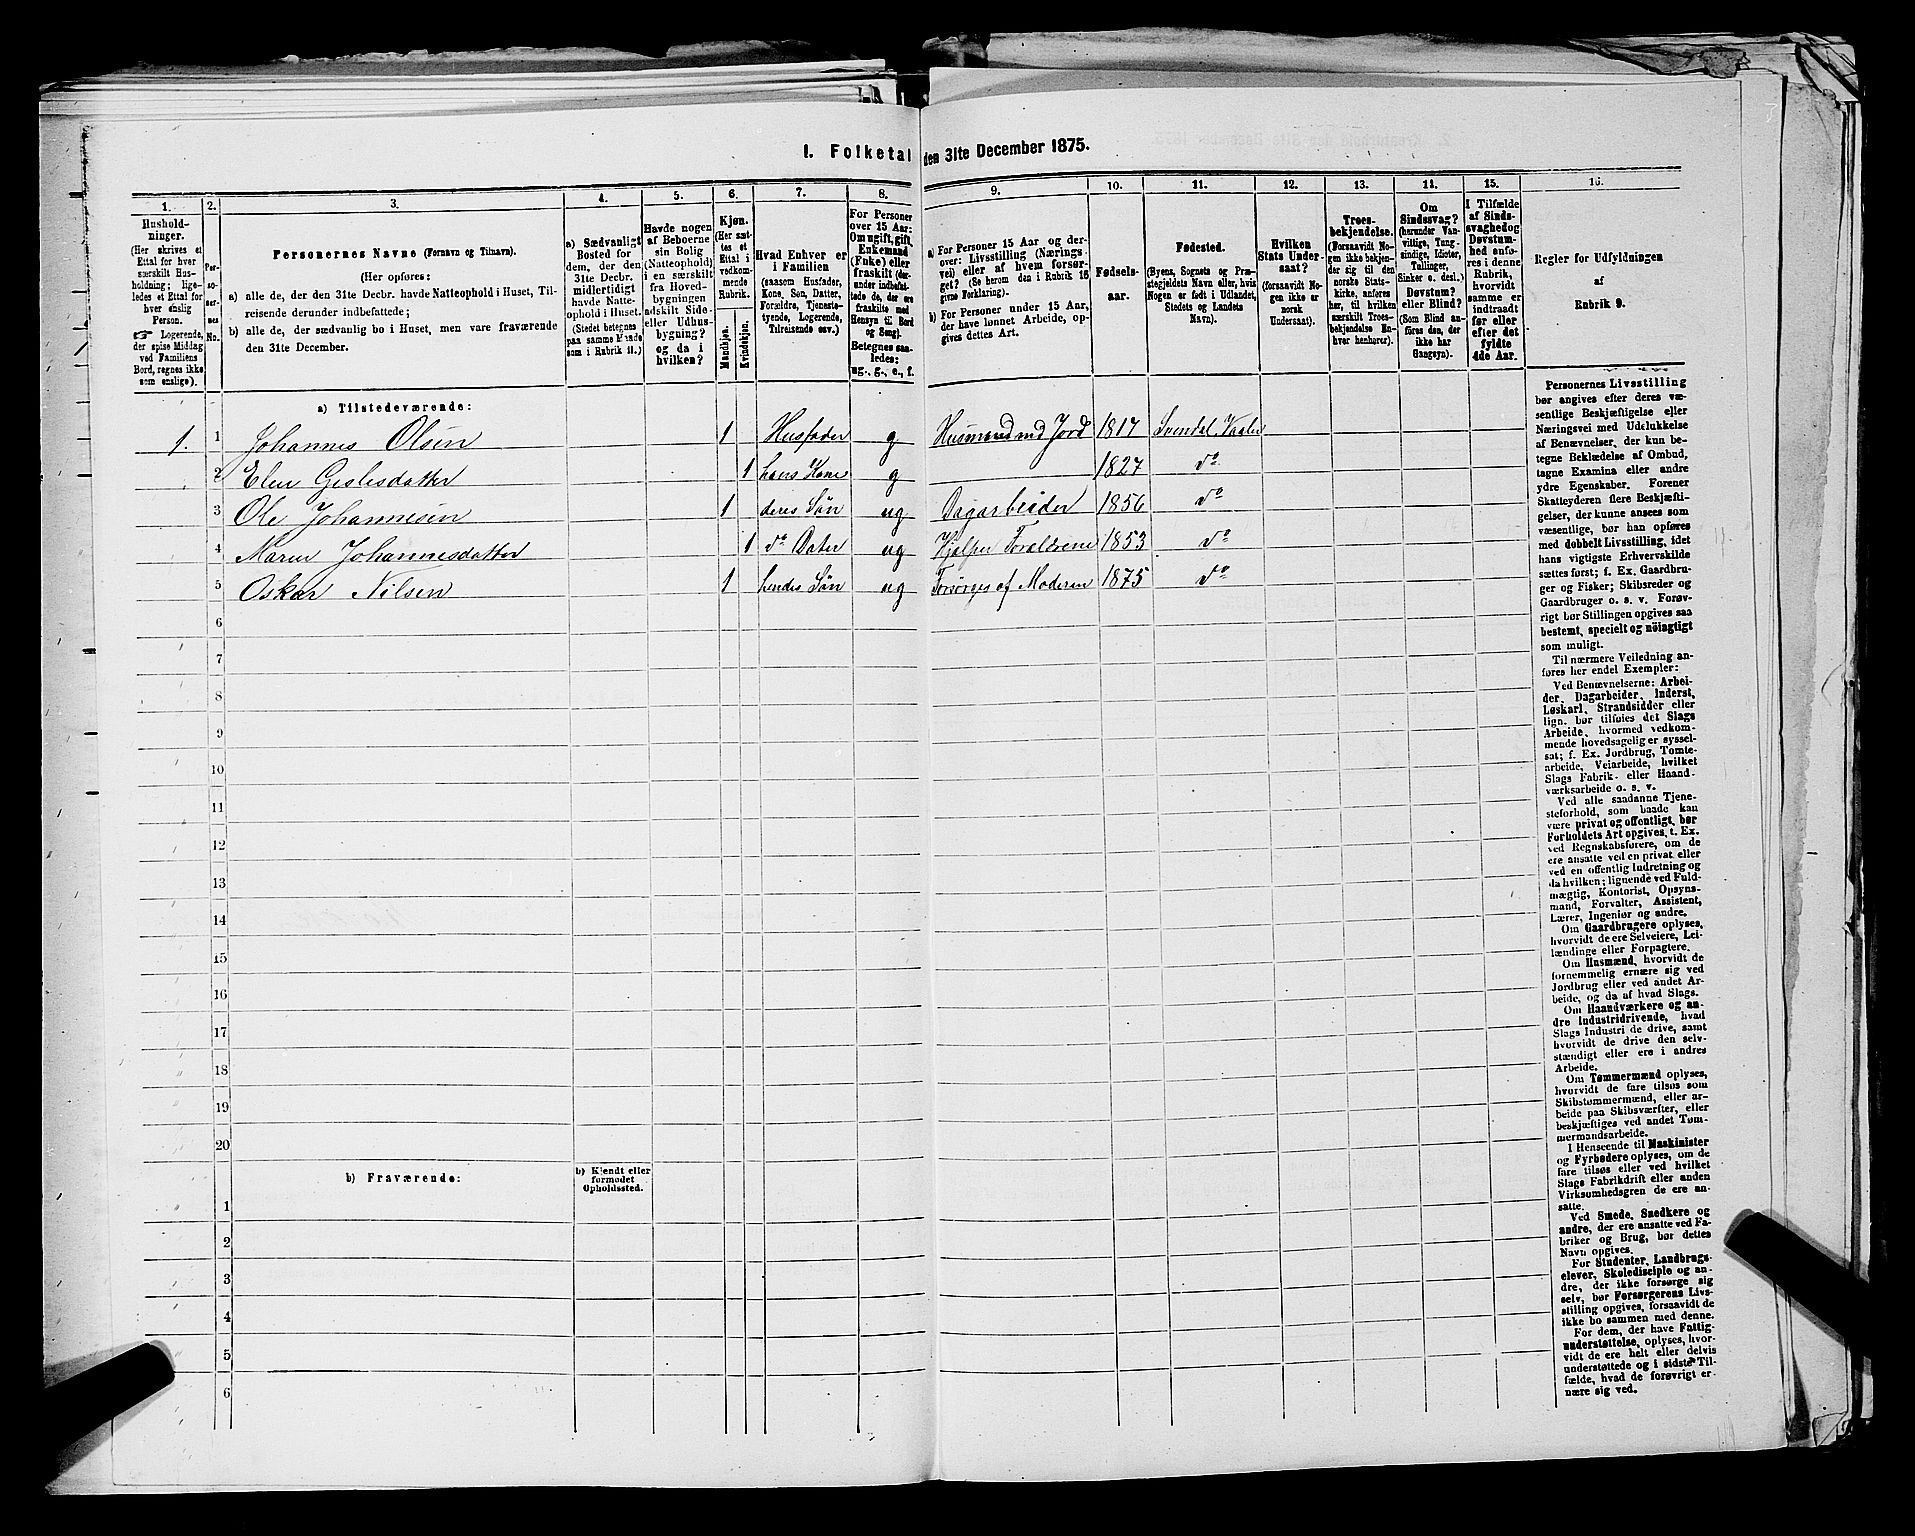 I. Folketal den 31te December 1875.
1. 2. 3. 4. 5. 6. 7. 8. 9. 10. 11. 12. 13. 14. 15. 16.
Hushold-
ninger.
(Her skrives et
Ettal for hver
særskilt Hus-
holdning; lige-
ledes et Ettal for
hver enslig
Person.
☞ Logerende,
der spise Middag
ved Familiens
Bord, regnes ikke
som enslige).
Per-
so-
ner-
nes
No.
Personernes Navne (Fornavn og Tilnavn).
(Her opføres:
a) alle de, der den 31te Decbr. havde Natteophold i Huset, Til-
reisende derunder indbefattede;
b) alle de, der sædvanlig bo i Huset, men vare fraværende
den 31te December.
a) Sædvanligt
Bosted for
dem, der den
31te Decbr.
midlertidigt
havde Natte-
ophold i Huset.
(Stedet betegnes
paa samme Maade
som i Rubrik 11.)
Havde nogen
af Beboerne
sin Bolig
(Natteophold)
i en særskilt
fra Hoved-
bygningen
adskilt Side-
eller Udhus-
bygning?
og da i
hvilken?
Kjøn.
(Her sæt-
tes et
Ettal i
vedkom-
mende
Rubrik.
Mandkjøn.
Kvindekjøn.
Hvad Enhver er
i Familien
(saasom Husfader,
Kone, Søn, Datter,
Forældre, Tjeneste-
tyende, Logerende,
Tilreisende osv.)
For Personer
over 15 Aar:
Om ugift, gift,
Enkemand
(Enke) eller
fraskilt (der-
under indbefat-
tede de, der ere
fraskilte med
Hensyn til Bord
og Seng).
Betegnes saa-
ledes:
ug., g., e., f.
a) For Personer 15 Aar og der-
over: Livsstilling (Nærings-
vei) eller af hvem forsør-
get? (Se herom den i Rubrik 16
givne Forklaring).
b) For Personer under 15 Aar,
der have lønnet Arbeide, op-
gives dettes Art.
Fødsels-
aar.
Fødested.
(Byens, Sognets og Præ-
stegjeldets Navn eller, hvis
Nogen er født i Udlandet,
Stedets og Landets
Navn).
Hvilken
Stats Under-
saat?
(forsaavidt No-
gen ikke er
norsk
Undersaat).
Troes-
bekjendelse.
(Forsaavidt No-
gen ikke bekjen-
der sig til den
norske Stats-
kirke, anføres
her, til hvilken
særskilt Troes-
bekjendelse En-
hver henhører).
Om
Sindssvag?
(herunder Van-
vittige, Tung-
sindige, Idioter,
Tullinger,
Sinker o. desl.)
Døvstum?
eller Blind?
(Som Blind an-
føres den, der
ikke har
Gangsyn).
I Tilfælde
af Sinds-
svaghed og
Døvstum-
hed anfø-
res i denne
Rubrik,
hvorvidt
samme er
indtraadt
før eller
efter det
fyldte
4de Aar.
Regler for Udfyldningen
af
Rubrik 9.
a) Tilstedeværende:
1. 1 Johannes Olsen 1 Husfader g Husmand md Jord 1817 Svendal, Vaaler
2 Elen Gislesdatter 1 hans Kone g 1827 do
3 Ole Johannesen 1 deres Søn ug Dagarbeider 1856 do
4 Maren Johannesdatter 1 do Dater ug Hjælper Forældrene 1853 do
5 Oskar Nilsen 1 hendes Søn ug Forsørges af Moderen 1875 do
6
7
8
9
10
11
12
13
14
15
16
17
18
19
20
b) Fraværende:
b) Kjendt eller
formodet
Opholdssted.
1
2
3
4
5
6
Personernes Livsstilling
bør angives efter deres væ-
sentlige Beskjæftigelse eller
Næringsvei med Udelukkelse
af Benævnelser, der kun be-
tegne Beklædelse af Ombud,
tagne Examina eller andre
ydre Egenskaber. Forener
Skatteyderen flere Beskjæfti-
gelser, der kunne ansees som
væsentlige, bør han opføres
med dobbelt Livsstilling, idet
hans vigtigste Erhvervskilde
sættes først; f. Ex. Gaardbru-
ger og Fisker; Skibsreder og
Gaardbruger o. s. v. Forøv-
rigt bør Stillingen opgives saa
bestemt, specielt og nøiagtigt
som muligt.
Til nærmere Veiledning an-
føres her endel Exempler:
Ved Benævnelserne: Arbei-
der, Dagarbeider, Inderst,
Løskarl, Strandsidder eller
lign. bør tilføies det Slags
Arbeide, hvormed vedkom-
mende hovedsagelig er syssel-
sat; f. Ex. Jordbrug, Tømte-
arbeide, Veiarbeide, hvilket
Slags Fabrik- eller Haand-
værksarbeide o. s. v.
Ved alle saadanne Tjene-
steforhold, som baade kan
være privat og offentligt, bør
Forholdets Art opgives, t. Ex.
ved Regnskabsførere, om de
ere ansatte ved en privat eller
ved en offentlig Indretning og
da hvilken; lignende ved Fuld-
mægtig, Kontorist, Opsyns-
mand, Forvalter, Assistent,
Lærer, Ingeniør og andre.
Om Gaardbrugere oplyses,
hvorvidt de ere Selveiere, Lei-
lændinge eller Forpagtere.
Om Husmænd, hvorvidt de
fornemmelig ernære sig ved
Jordbrug eller ved andet Ar-
beide, og da af hvad Slags.
Om Haandværkere og an-
dre Industridrivende, hvad
Slags Industri de drive, samt
hvorvidt de drive den selv-
stændigt eller ere i andres
Arbeide.
Om Tømmermænd oplyses,
hvorvidt de fare tilsøs som
Skibstømmermænd, eller ar-
beide paa Skibsværfter, eller
beskjæftiges ved andet Tøm-
mermandsarbeide.
I Henseende til Maskinister
og Fyrbødere oplyses, om de
fare tilsøs eller ved hvilket
Slags Fabrikdrift eller anden
Virksomhedsgren de ere an-
satte.
Ved Smede, Snedkere og
andre, der ere ansatte ved Fa-
briker og Brug, bør dettes
Navn opgives.
For Studenter, Landbrugs-
elever, Skoledisciple og an-
dre, der ikke forsørge sig
selv, bør Forsørgerens Livs-
stilling opgives, forsaavidt de
ikke bo sammen med denne.
For dem, der have Fattig-
understøttelse, oplyses, hvor-
vidt de ere helt eller delvis
understøttede og i sidste Til-
fælde, hvad de forøvrigt er-
nære sig ved.